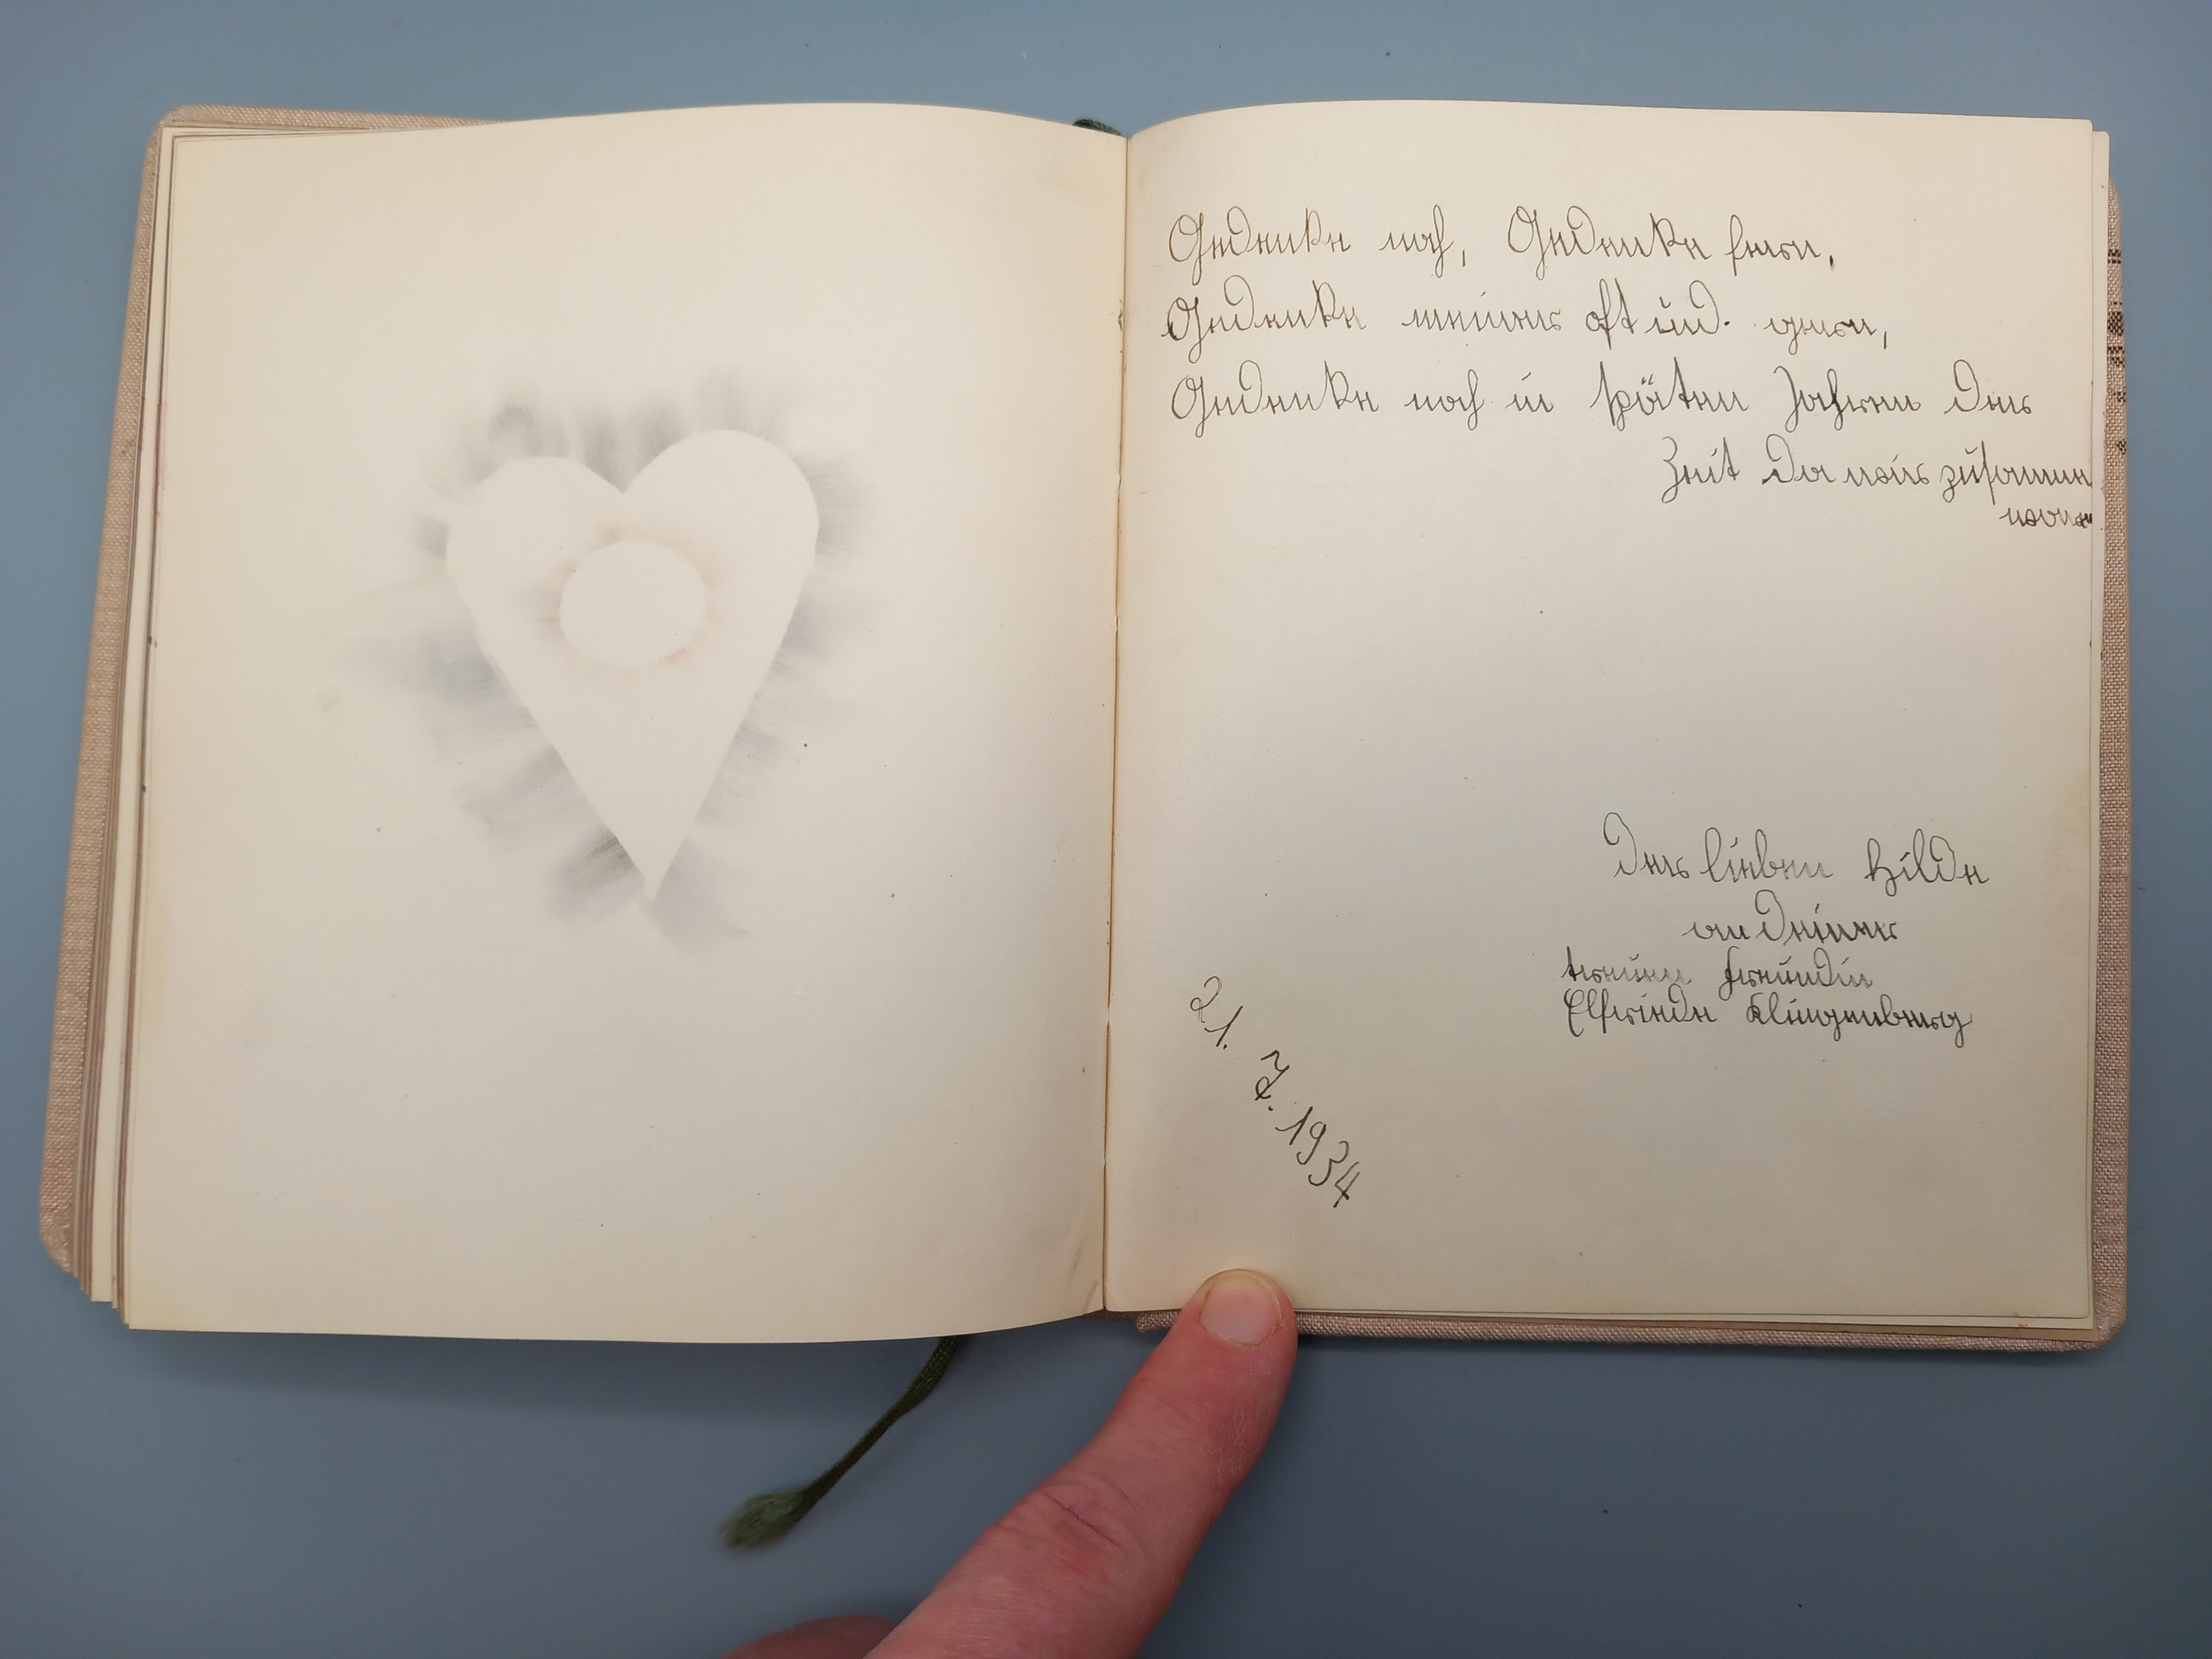 Gedenke nah, Gedenke fern,
Gedenke meiner oft und. gern,
Gedenke noch in späten Jahren der
Zeit da wir zusammen
waren
Der lieben Hilde
von Deiner
treuen Freundin
Elfriede Klingenberg
21. 7. 1934